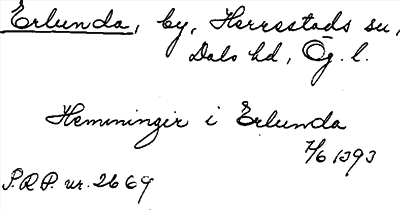 Erlunda, by, Herrestads sn,
Dals hd, Ög. l.
Hemmingir i Erlunda
7/6 1393
P.R.P. nr. 2669